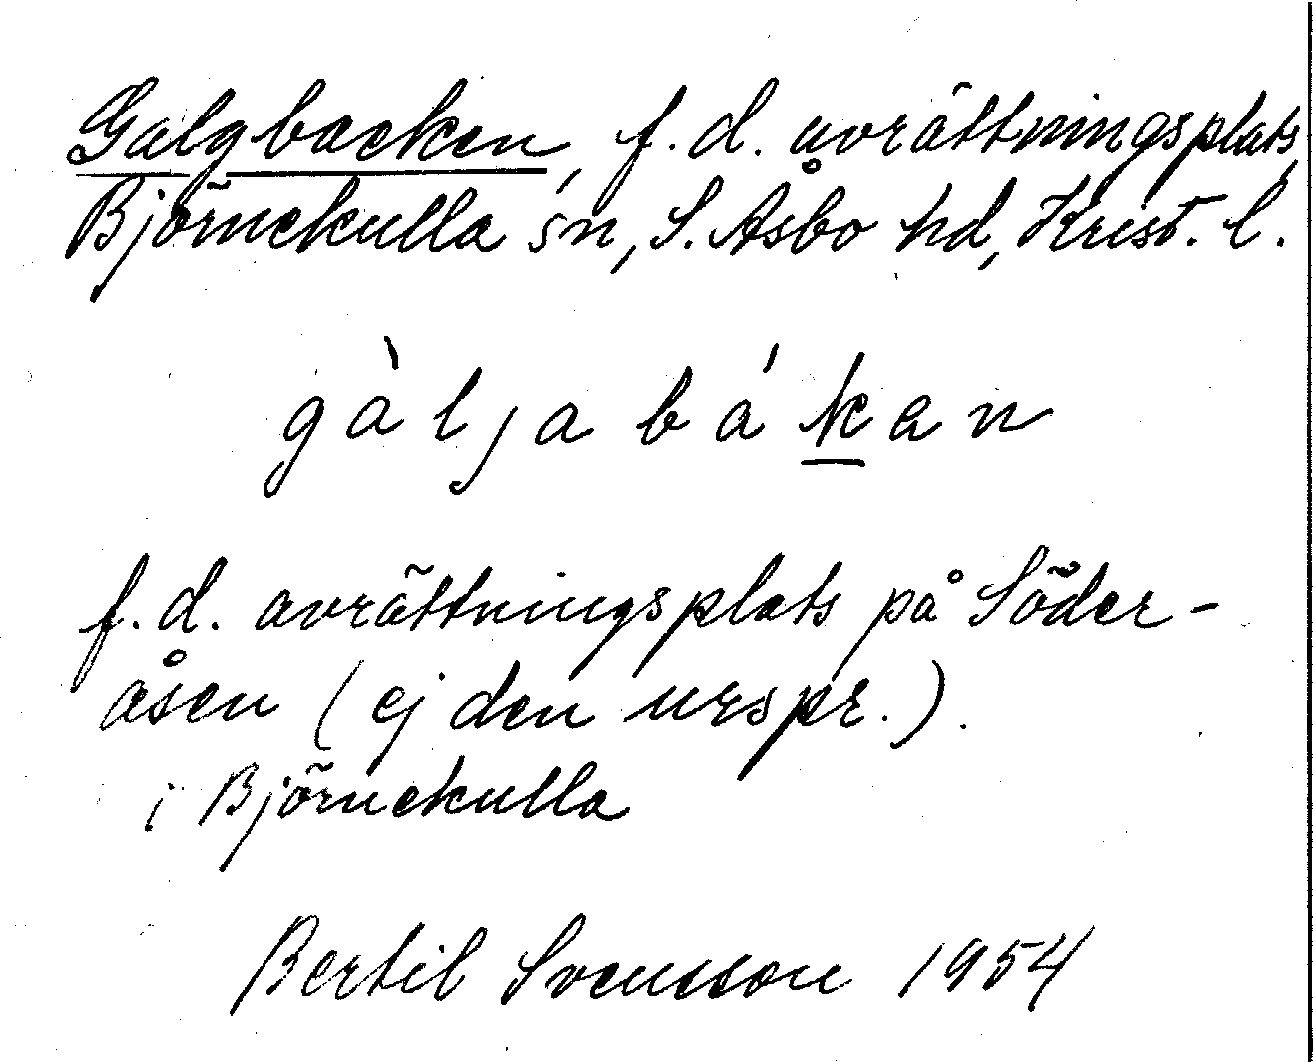 Galgbacken, f.d. avrättningsplats,
Björnekulla sn, S. Åsbo hd, Krist. l.
gàljabákan
f.d. avrättningsplats på Söder-
åsen (ej den urspr.).
i Björnekulla
Bertil Svensson 1954